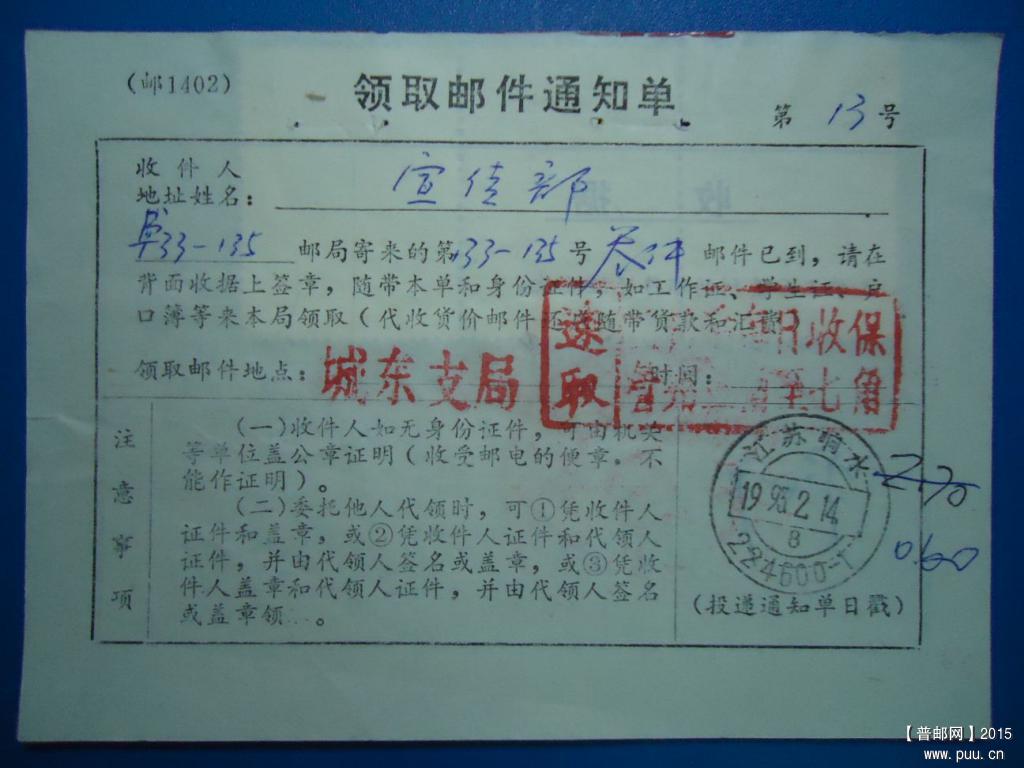 (邮1402)
领取邮件通知单
第 13 号
收件人
地址姓名： 宣传部
阜33-135 邮局寄来的第 33-135 号 卷件 邮件已到，请在
背面收据上签章，随带本单和身份证件，如工作证、学生证、户
口簿等来本局领取（代收货价邮件还应随带货款和汇费）
速取 日收保
至七角
领取邮件地点： 城东支局 时间：
注意事项
（一）收件人如无身份证件，可由机关
等单位盖公章证明（收受邮电的便章，不
能作证明）。
（二）委托他人代领时，可①凭收件人
证件和盖章，或②凭收件人证件和代领人
证件，并由代领人签名或盖章，或③凭收
件人盖章和代领人证件，并由代领人签名
或盖章领 。
江苏响水
1996.2.14
8
224600-1
2.70
0.60
(投递通知单日戳)
【普邮网】2015
www.puu.cn